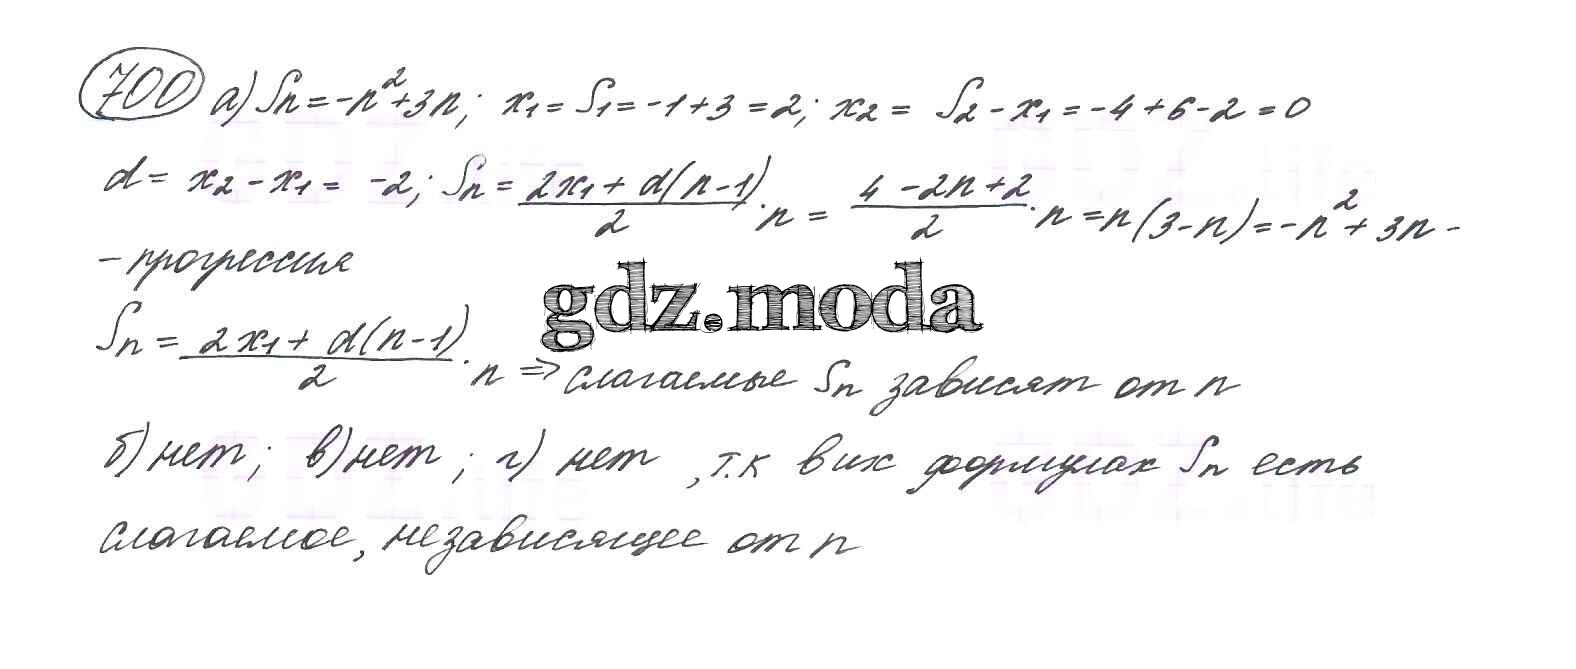 700 а) Sn = -n² + 3n; x₁ = S₁ = -1 + 3 = 2; x₂ = S₂ - x₁ = -4 + 6 - 2 = 0
d = x₂ - x₁ = -2; Sn = (2x₁ + d(n-1))/2 · n = (4 - 2n + 2)/2 · n = n(3-n) = -n² + 3n -
- прогрессия
gdz.moda
Sn = (2x₁ + d(n-1))/2 · n ⇒ слагаемые Sn зависят от n
б) нет; в) нет; г) нет, т.к в их формулах Sn есть
слагаемое, независящее от n